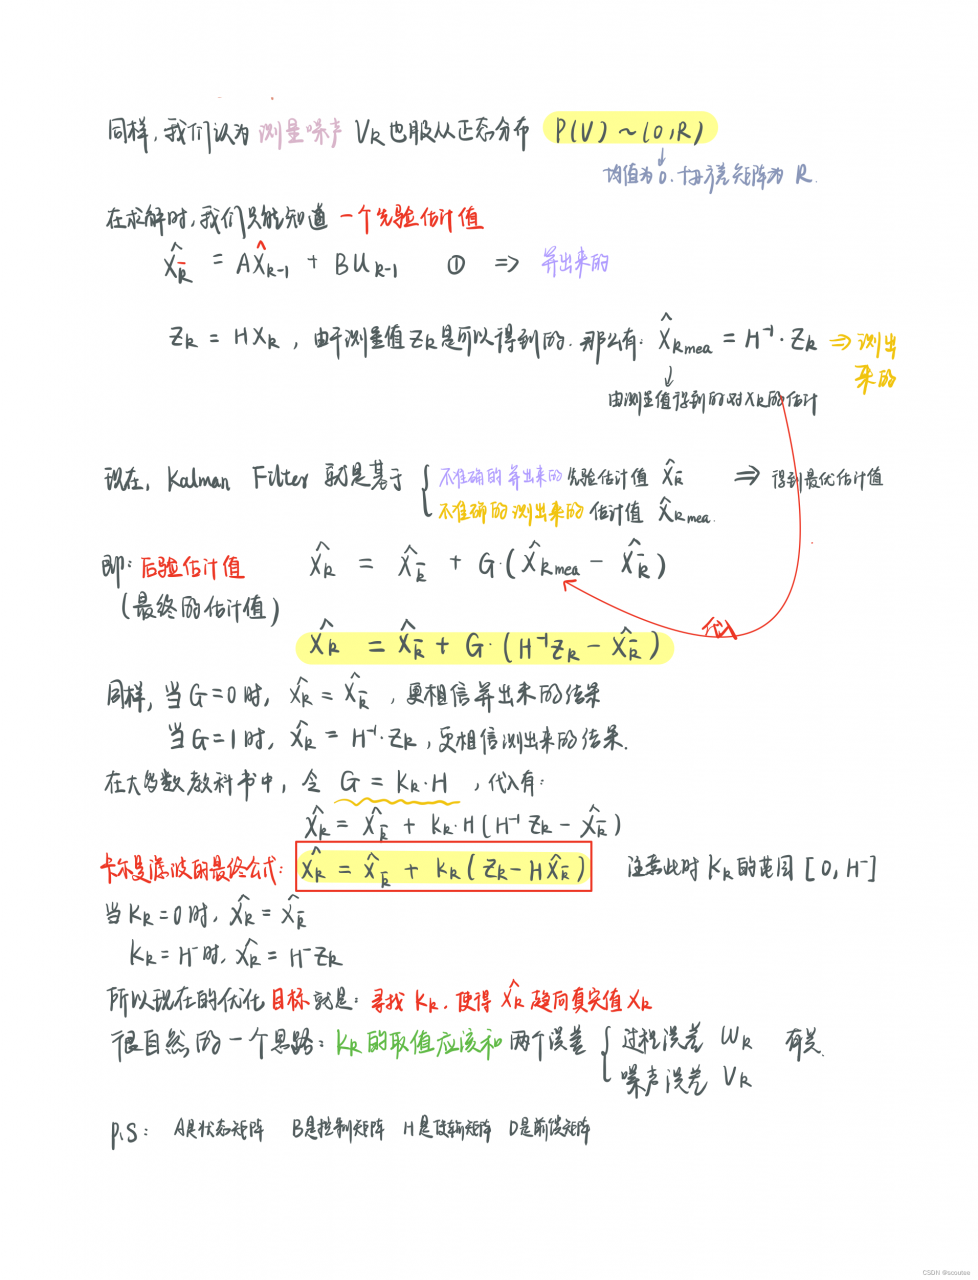 同样,我们认为 测量噪声 VK 也服从正态分布 P(V) ~ (0,R)
均值为0.协方差矩阵为 R.
在求解时,我们只能知道 一个先验估计值
X̂k̄ = AX̂k-1 + BUk-1 ① => 算出来的
Zk = HXk , 由于测量值Zk是可以得到的. 那么有: X̂kmea = H⁻¹·Zk => 测出
来的
由测量值得到的对Xk的估计
现在, Kalman Filter 就是基于 { 不准确的算出来的 先验估计值 X̂k̄ => 得到最优估计值
不准确的测出来的 估计值 X̂kmea.
即: 后验估计值 X̂k = X̂k̄ + G·(X̂kmea − X̂k̄)
(最终的估计值)
代入
X̂k = X̂k̄ + G·(H⁻¹Zk − X̂k̄)
同样, 当G=0时, X̂k = X̂k̄ , 更相信算出来的结果
当G=1时, X̂k = H⁻¹·Zk , 更相信测出来的结果.
在大多数教科书中, 令 G = Kk·H , 代入有:
X̂k = X̂k̄ + Kk·H(H⁻¹Zk − X̂k̄)
卡尔曼滤波的最终公式: X̂k = X̂k̄ + Kk(Zk − HX̂k̄) 注意此时Kk的范围[0, H⁻]
当Kk=0时, X̂k = X̂k̄
Kk=H⁻时, X̂k = H⁻Zk
所以现在的优化目标就是: 寻找Kk, 使得 X̂k 趋向真实值Xk
很自然的一个思路: Kk的取值应该和 两个误差 { 过程误差 Wk 有关.
噪声误差 Vk
P.S: A是状态矩阵 B是控制矩阵 H是传输矩阵 D是前馈矩阵